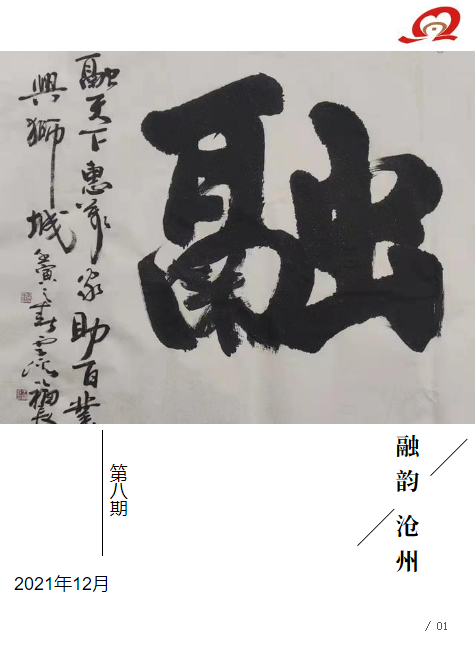 融
融天下惠萬家助百業
興獅城
第八期
融韵
沧州
2021年12月
/ 01